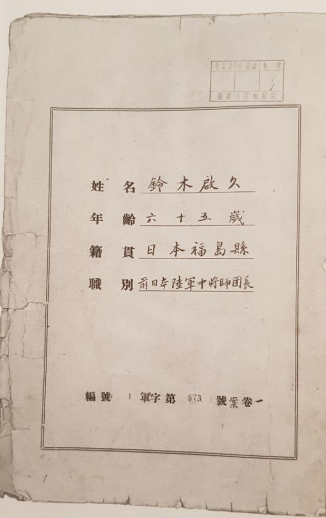 姓名 鈴木啟久
年齡 六十五歲
籍貫 日本福島縣
職別 前日本陸軍中將師團長
編號 1 軍字第 673 號案卷一